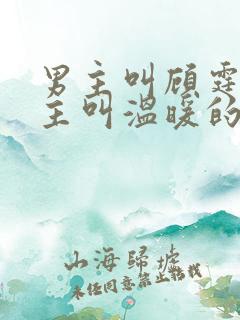 男主叫顾霆
主叫温暖的
山海归墟
未经同意禁止转载